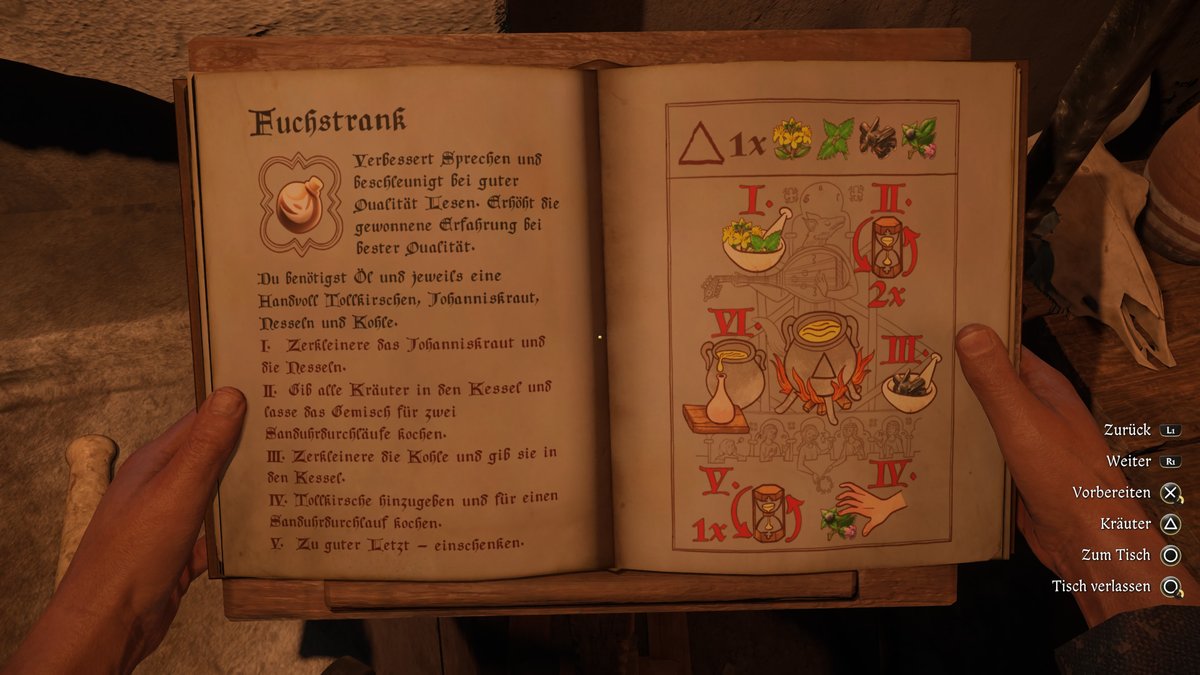 Fuchstrank
Verbessert Sprechen und
beschleunigt bei guter
Qualität Lesen. Erhöht die
gewonnene Erfahrung bei
bester Qualität.
Du benötigst Öl und jeweils eine
Handvoll Tollkirschen, Johanniskraut,
Nesseln und Kohle.
I. Zerkleinere das Johanniskraut und
die Nesseln.
II. Gib alle Kräuter in den Kessel und
lasse das Gemisch für zwei
Sanduhrdurchläufe kochen.
III. Zerkleinere die Kohle und gib sie in
den Kessel.
IV. Tollkirsche hinzugeben und für einen
Sanduhrdurchlauf kochen.
V. Zu guter Letzt – einschenken.
1x
I.
II.
2x
VI.
III.
V.
IV.
1x
Zurück L1
Weiter R1
Vorbereiten
Kräuter
Zum Tisch
Tisch verlassen